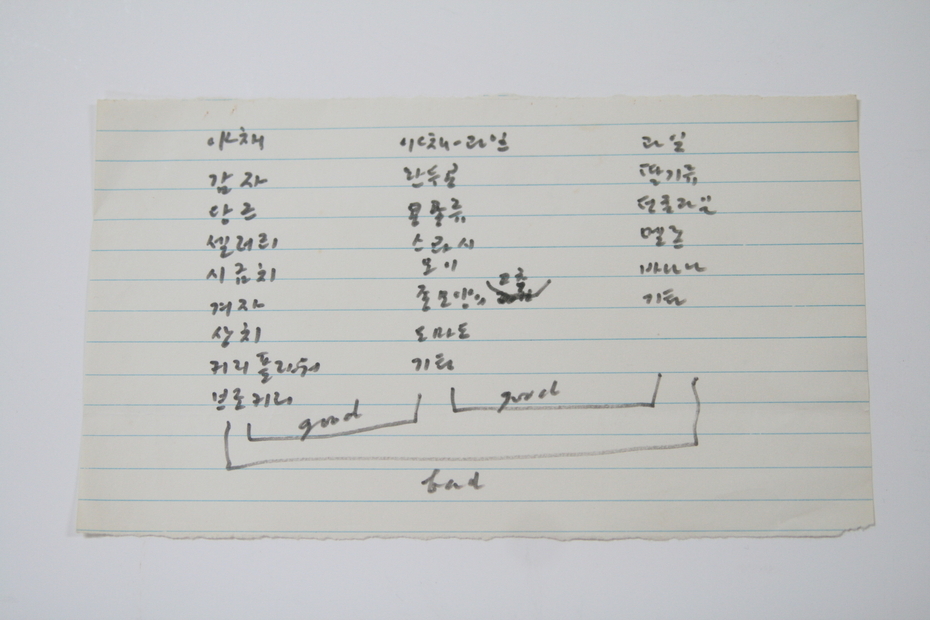 야채 야채-과일 과일
감자 완두콩 딸기류
당근
셀러리 스쿼시 멜론
시금치 오이 바나나
겨자 기타
상치 도마도
커리플라워 기타
브로커리
good good
bad